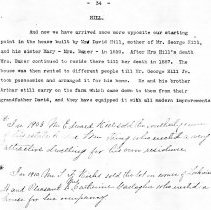 - 34 -
HILL.
And now we have arrived once more opposite our starting
point in the house built by Mrs David Hill, mother of Mr. George Hill,
and his sister Mary - Mrs. Baker - in 1880. After Mrs Hill's death
Mrs. Baker continued to reside there till her death in 1887. The
house was then rented to different people till Mr. George Hill Jr.
took possession and arranged it for his home. He and his brother
Arthur still carry on the farm which came down to them from their
grandfather David, and they have equipped it with all modern improvements
In 1908 Mr Edward
attractive dwelling for his own residence.
In 1910 Mr. sold the lot on corner of
and Pleasant to Catherine who erected a
house for her occupancy.